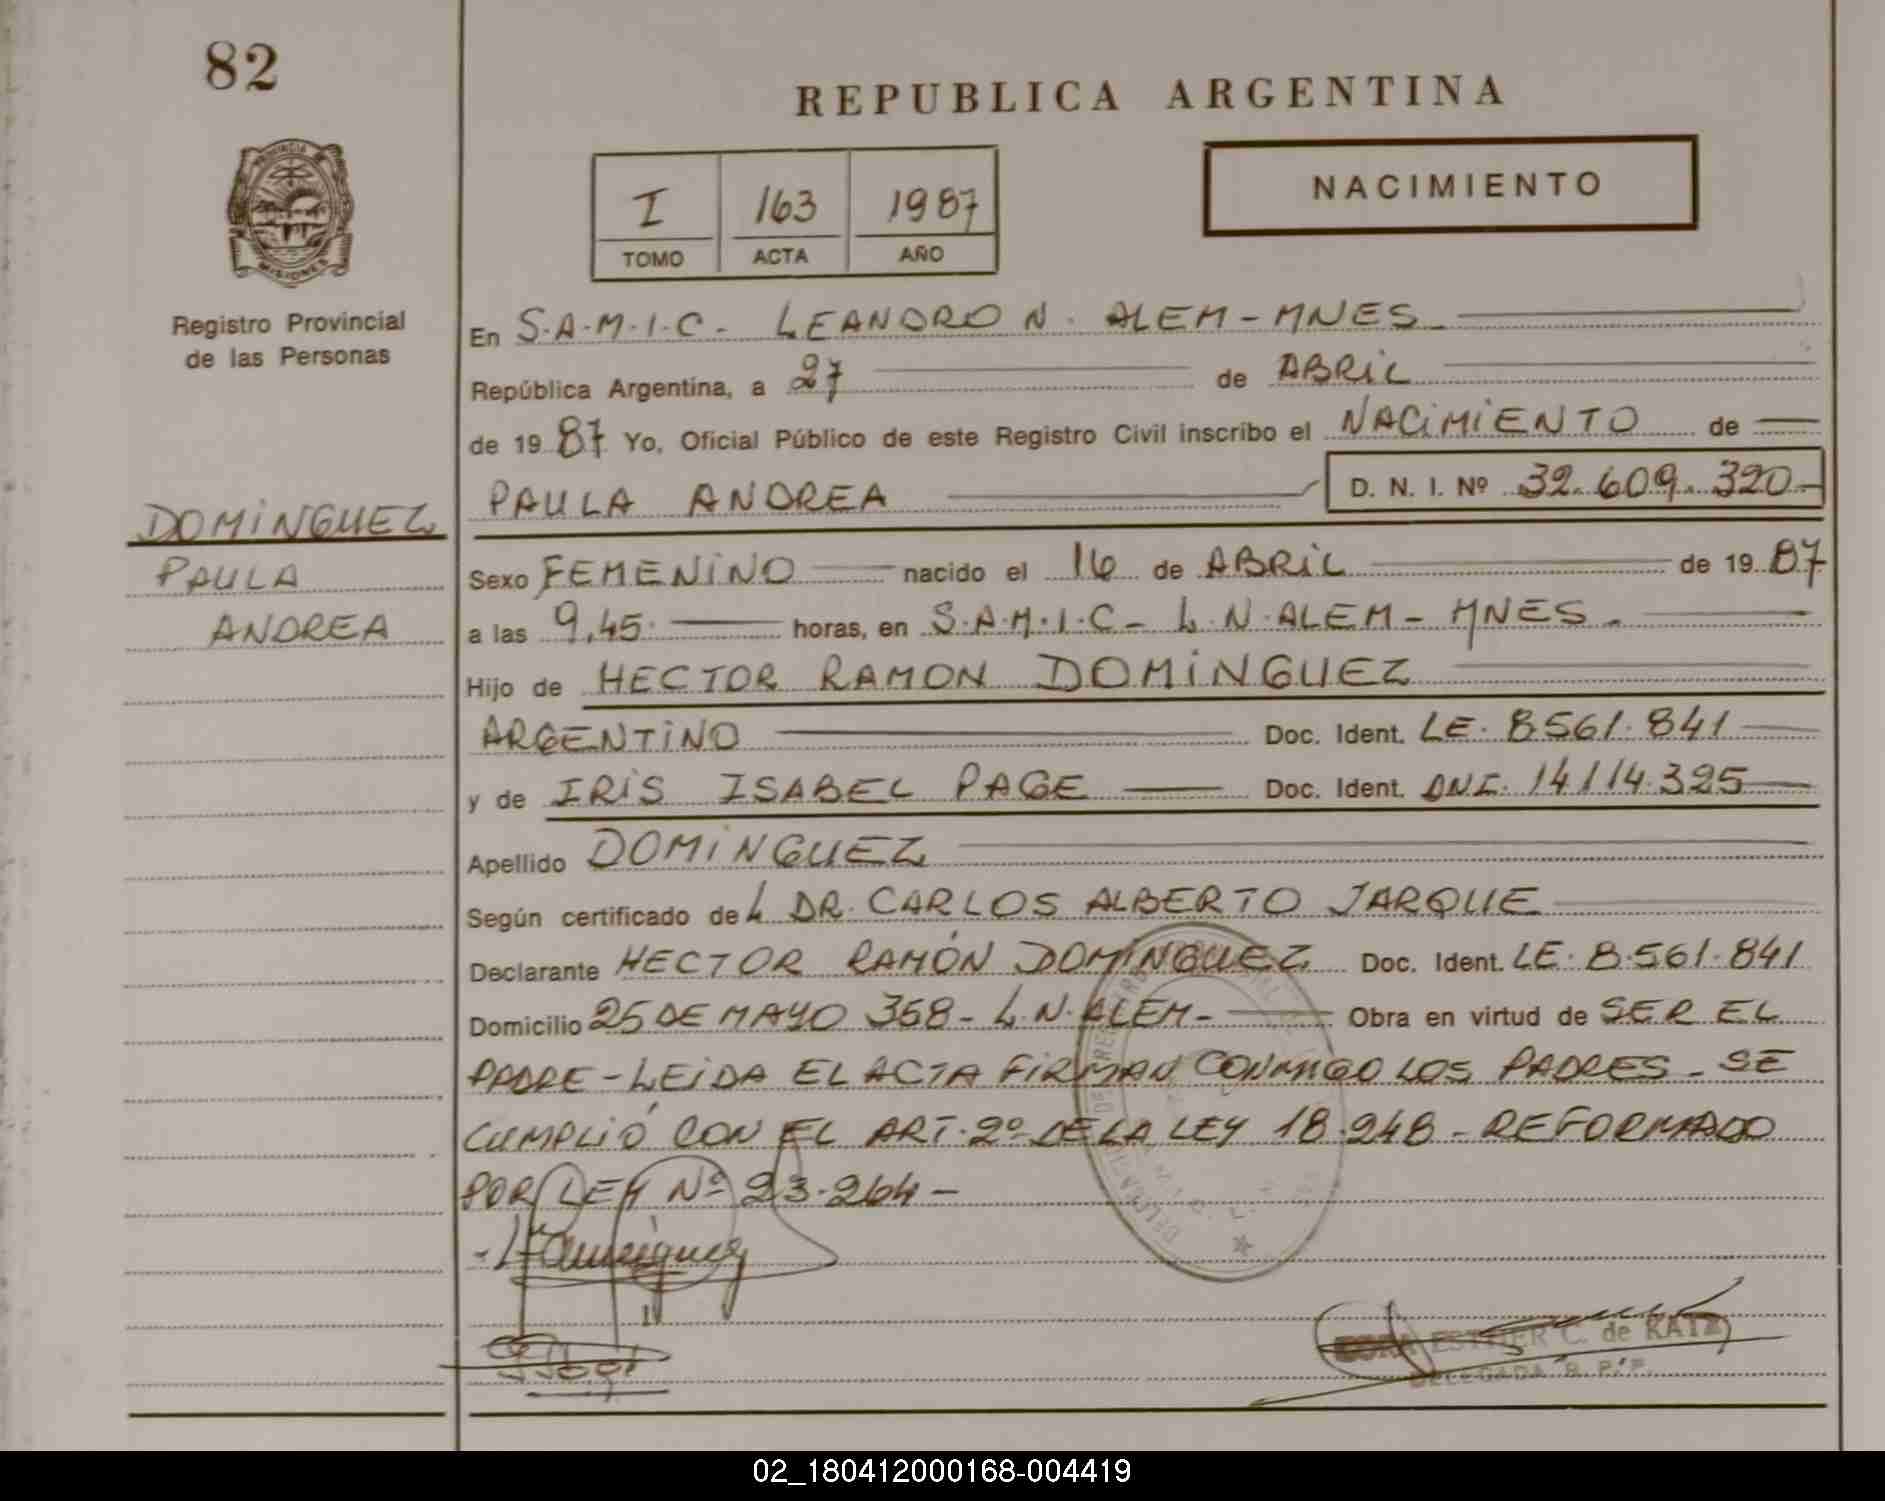 82
REPUBLICA ARGENTINA
PROVINCIA DE
MISIONES
Registro Provincial
de las Personas
I 163 1987
TOMO ACTA AÑO
NACIMIENTO
En S.A.M.I.C - LEANDRO N. ALEM - MNES -
República Argentina, a 27 de ABRIL
de 1987 Yo, Oficial Público de este Registro Civil inscribo el NACIMIENTO de
PAULA ANDREA D. N. I. Nº 32.609.320-
DOMINGUEZ
PAULA
ANDREA
Sexo FEMENINO nacido el 16 de ABRIL de 1987
a las 9,45 horas, en S.A.M.I.C - L.N.ALEM - MNES -
Hijo de HECTOR RAMON DOMINGUEZ
ARGENTINO Doc. Ident. LE. 8561.841
y de IRIS ISABEL PAGE Doc. Ident. DNI. 14114.325
Apellido DOMINGUEZ
Según certificado del DR. CARLOS ALBERTO JARQUE
Declarante HECTOR RAMÓN DOMINGUEZ Doc. Ident. LE. 8.561.841
Domicilio 25 DE MAYO 368 - L.N.ALEM - Obra en virtud de SER EL
PADRE - LEIDA EL ACTA FIRMAN CONMIGO LOS PADRES - SE
CUMPLIÓ CON EL ART. 2º DE LA LEY 18.248 - REFORMADO
POR LEY Nº 23.264 -
ESTHER C. de KATZ
DELEGADA R. P. P.
02_180412000168-004419